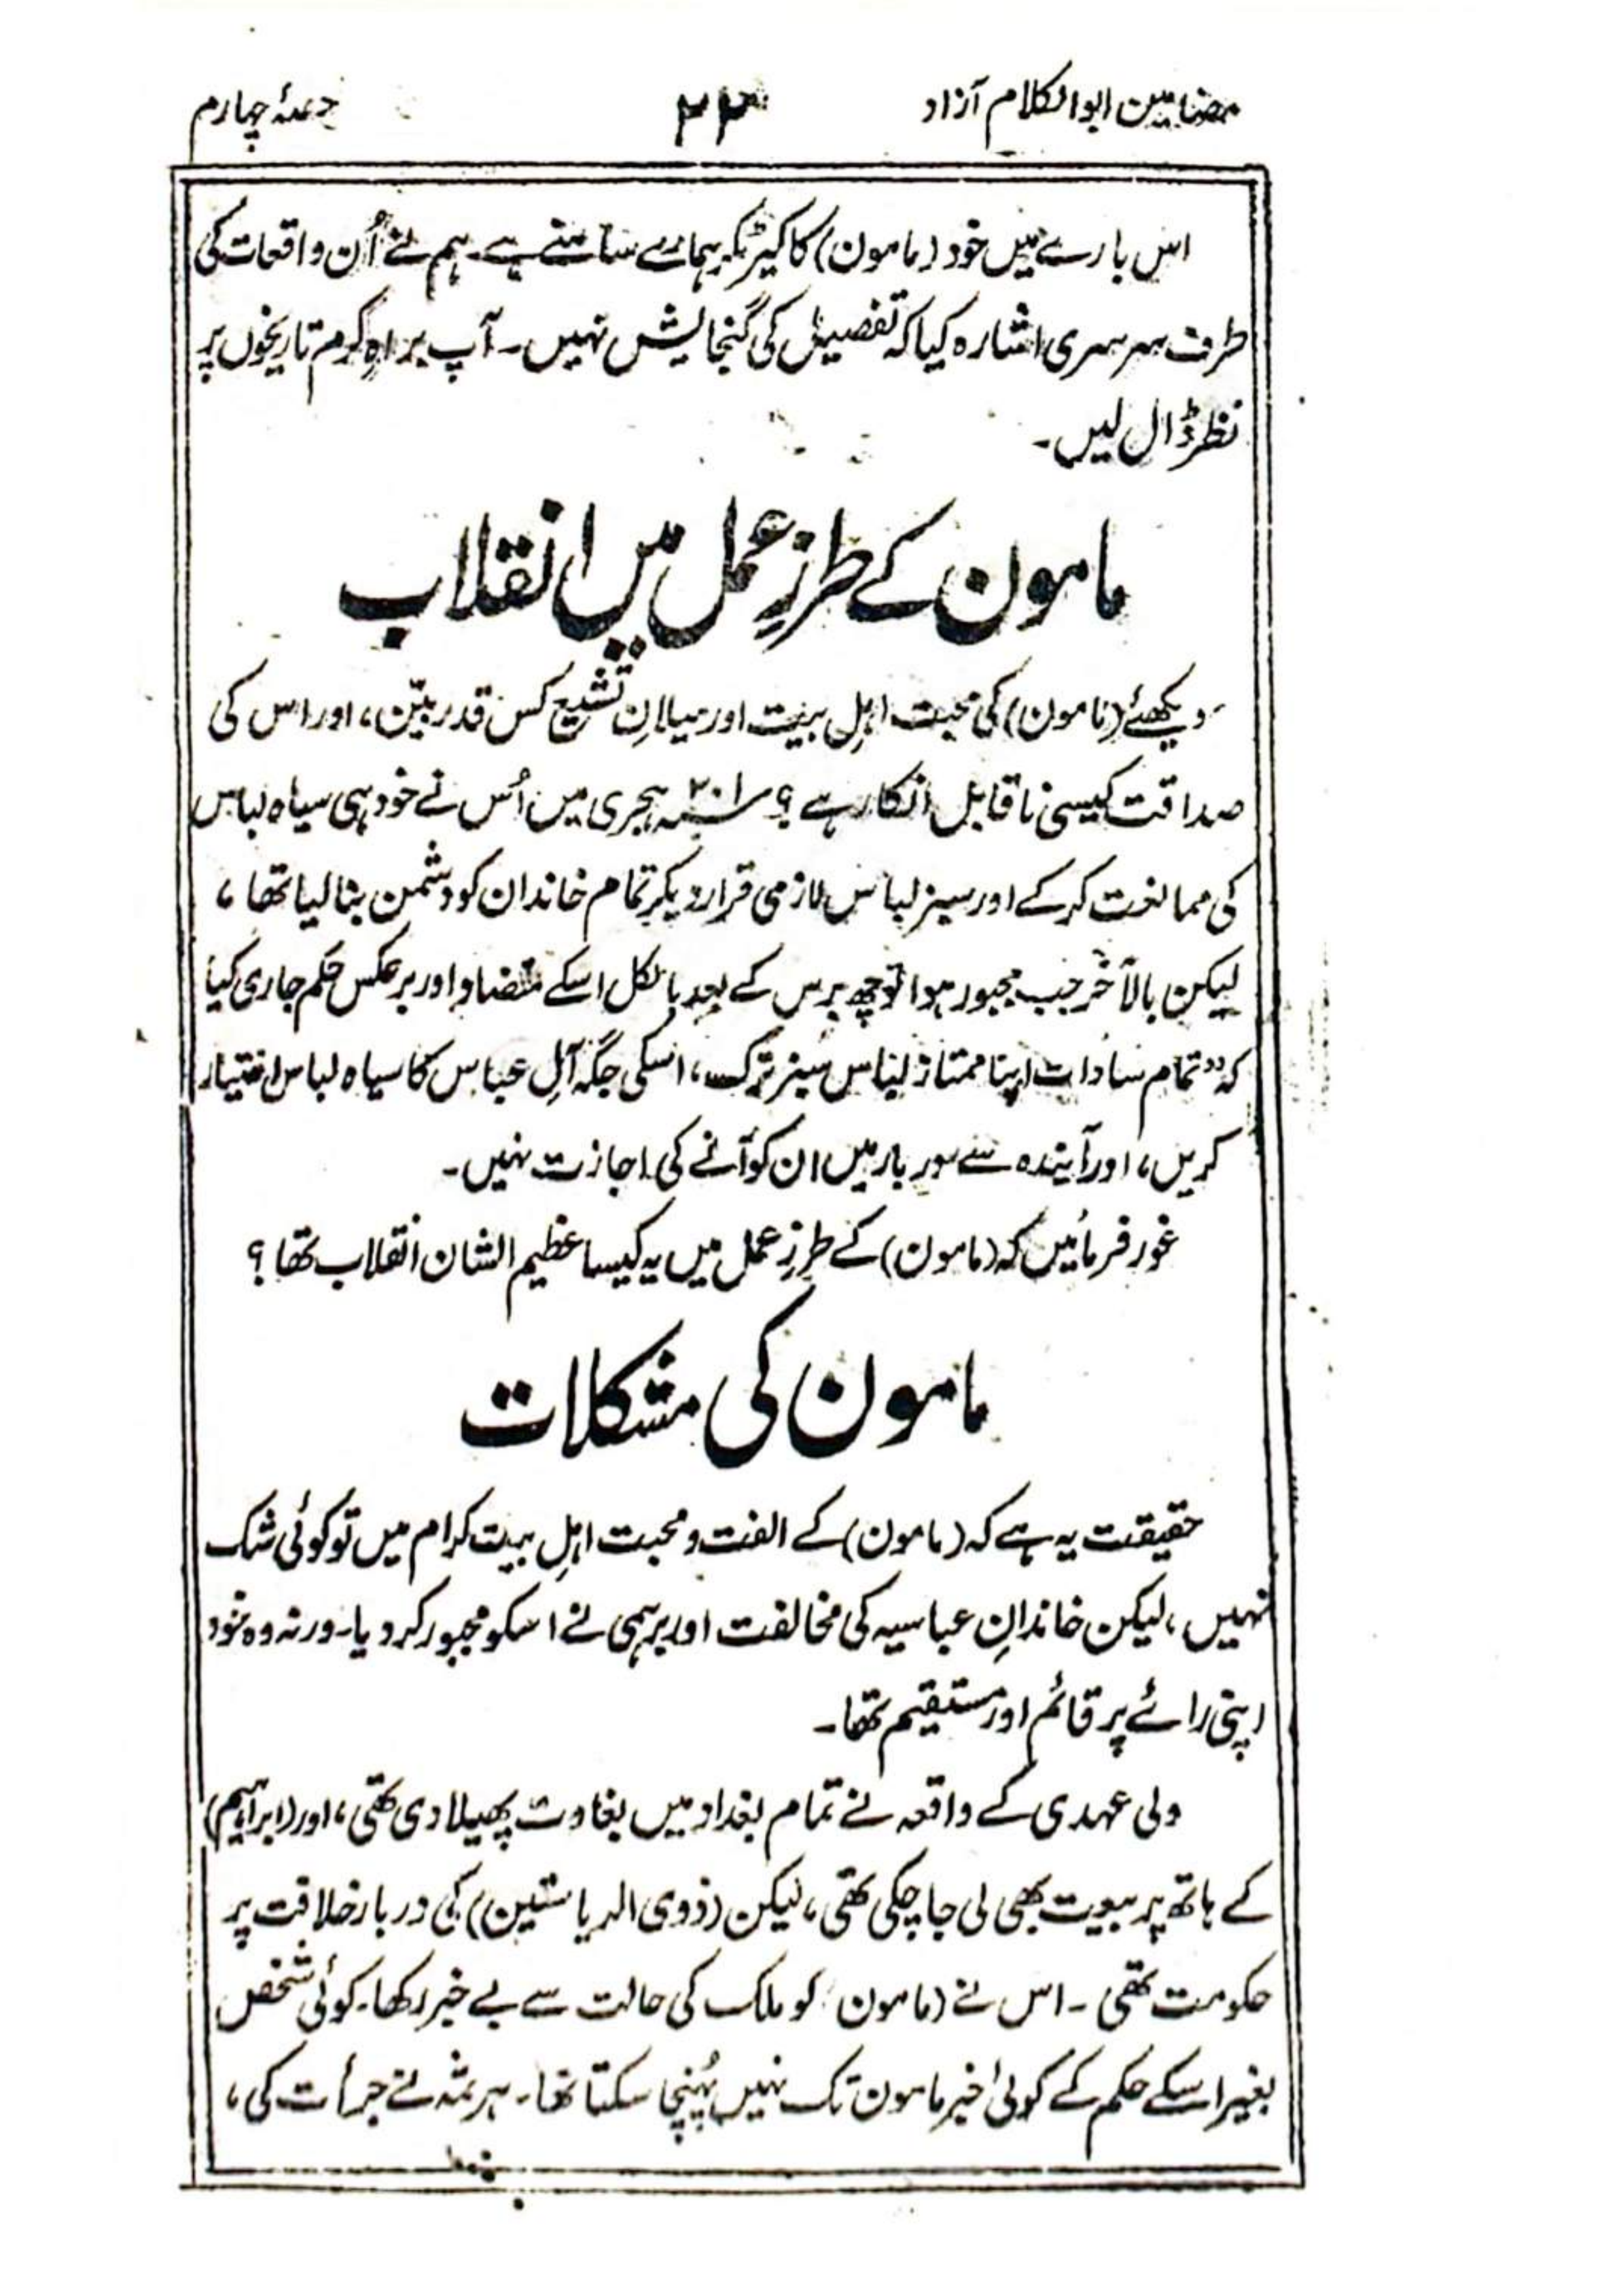 مضامین ابوالکلام آزاد
۲۳
حصۂ چہارم
اس بارے میں خود (مامون) کا کیرکٹر ہمارے سامنے ہے۔ ہم نے اُن واقعات کی
طرف سرسری اشارہ کیا کہ تفصیل کی گنجایش نہیں۔ آپ براہِ کرم تاریخوں پر
نظر ڈال لیں۔
مامون کے طرزِ عمل میں انقلاب
دیکھئے (مامون) کی محبت اہلِ بیت اور میلانِ تشیع کس قدر بیّن، اور اس کی
صداقت کیسی ناقابل انکار ہے ؟ ۲۰۱؁ ہجری میں اُس نے خود ہی سیاہ لباس
کی ممانعت کرکے اور سبز لباس لازمی قرار دیکر تمام خاندان کو دشمن بنا لیا تھا،
لیکن بالآخر جب مجبور ہوا تو چھ برس کے بعد بالکل اسکے متضاد اور برعکس حکم جاری کیا
کہ "تمام سادات اپنا ممتاز لباس سبز ترک، اسکی جگہ آلِ عباس کا سیاہ لباس اختیار
کریں، اور آیندہ سے دربار میں ان کو آنے کی اجازت نہیں۔
غور فرمائیں کہ (مامون) کے طرزِ عمل میں یہ کیسا عظیم الشان انقلاب تھا ؟
مامون کی مشکلات
حقیقت یہ ہے کہ (مامون) کے الفت و محبت اہلِ بیت کرام میں تو کوئی شک
نہیں، لیکن خاندانِ عباسیہ کی مخالفت اور برہمی نے اسکو مجبور کردیا۔ ورنہ وہ خود
اپنی رائے پر قائم اور مستقیم تھا۔
ولی عہدی کے واقعہ نے تمام بغداد میں بغاوت پھیلا دی تھی، اور (ابراہیم)
کے ہاتھ پر بیعت بھی لی جا چکی تھی، لیکن (ذوی الریاستین) کی دربار خلافت پر
حکومت تھی ۔ اس نے (مامون) کو ملک کی حالت سے بے خبر رکھا۔ کوئی شخص
بغیر اسکے حکم کے کوئی خبر مامون تک نہیں پُہنچا سکتا تھا۔ ہرثمہ نے جرأت کی،